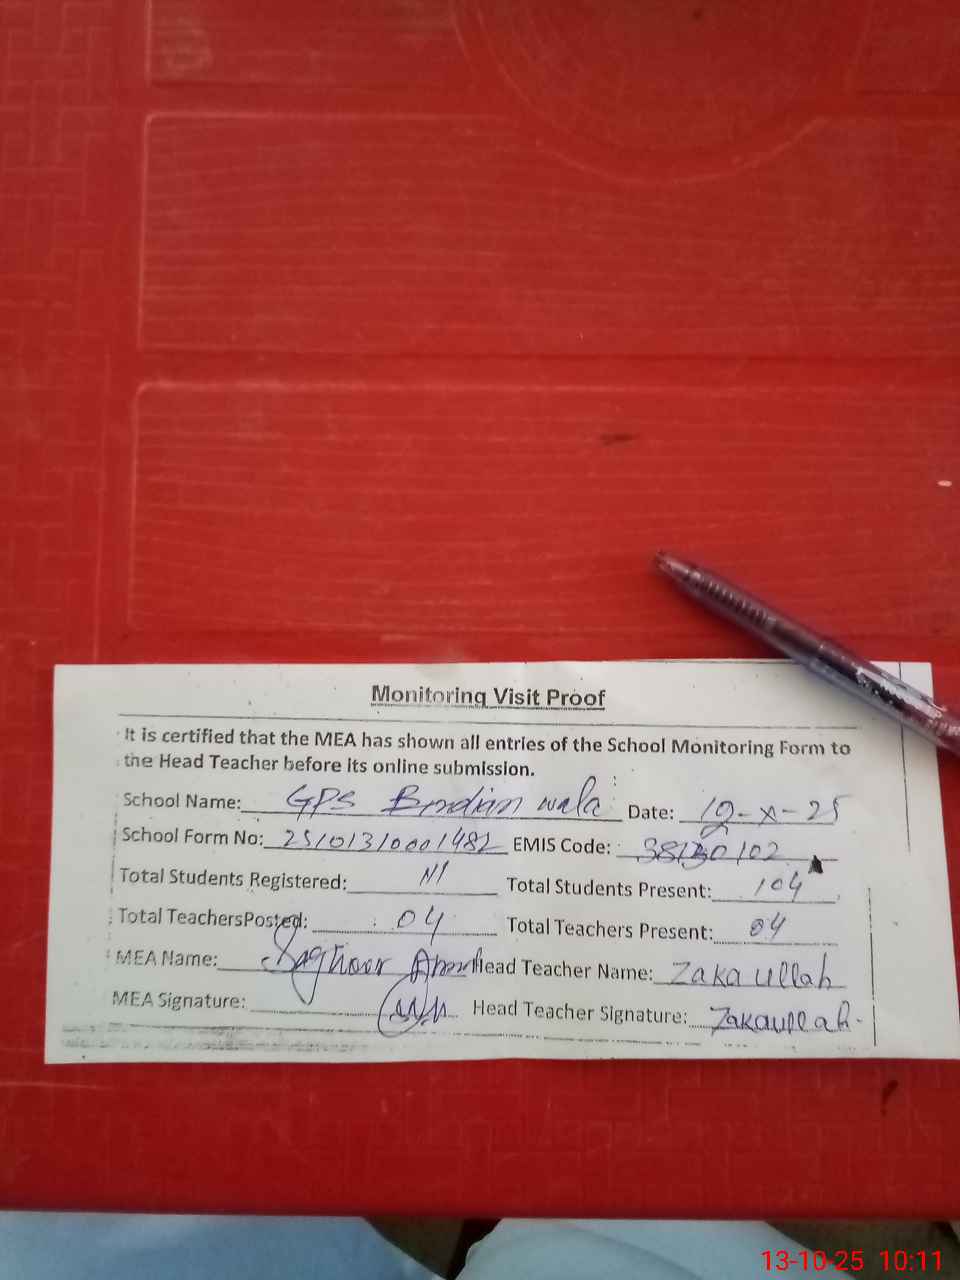 Monitoring Visit Proof
It is certified that the MEA has shown all entries of the School Monitoring Form to
the Head Teacher before its online submission.
School Name: GPS wala Date: -X-25
School Form No: 25101310001482 EMIS Code:
Total Students Registered: Total Students Present: 104
Total TeachersPosted: 04 Total Teachers Present: 04
MEA Name: Head Teacher Name: Zaka ullah
MEA Signature: Head Teacher Signature: Zakaullah.
13-10-25 10:11